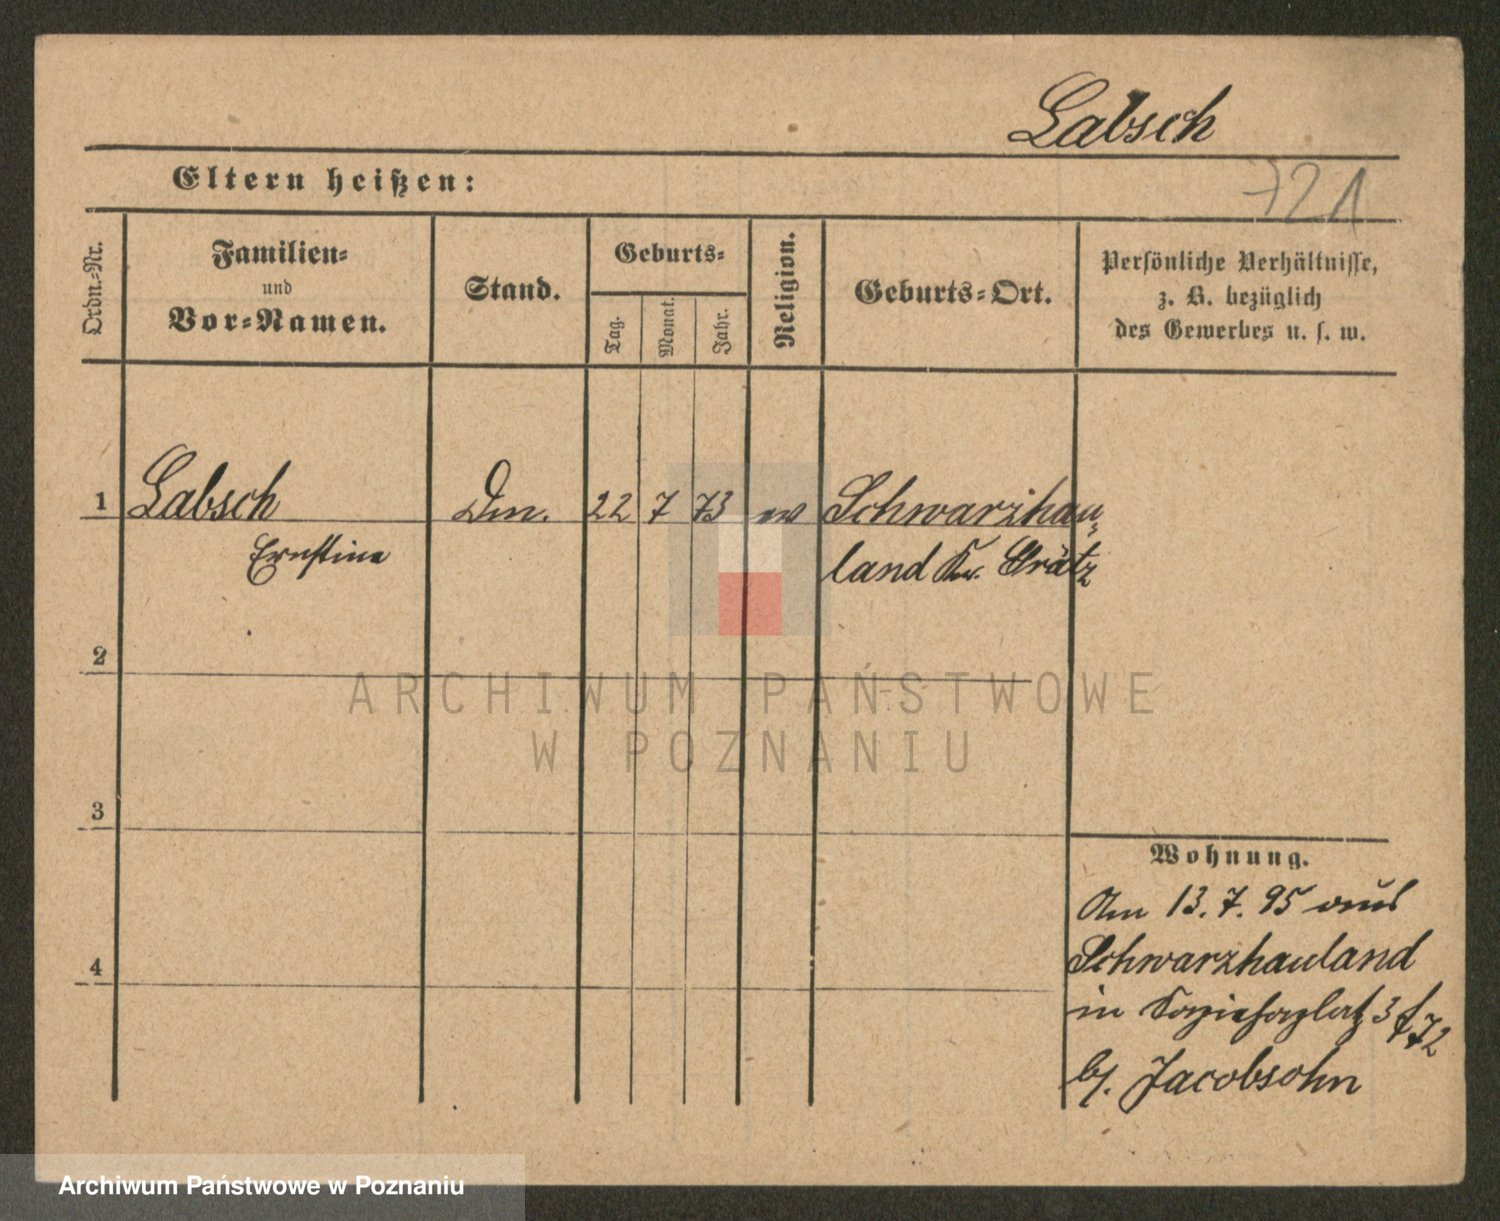 Labsch
Eltern heißen:
721
Ordn.-Nr.
Familien-
und
Vor-Namen.
Stand.
Geburts-
Tag.
Monat.
Jahr.
Religion.
Geburts-Ort.
Persönliche Verhältnisse,
z. B. bezüglich
des Gewerbes u. s. w.
1 Labsch Dm. 22 7 73 ev Schwarzhau-
Ernstine land Kr. Grätz
2
ARCHIWUM PAŃSTWOWE
W POZNANIU
3
Wohnung.
Am 13.7.95 aus
4
Schwarzhauland
in 3
b/. Jacobsohn
Archiwum Państwowe w Poznaniu